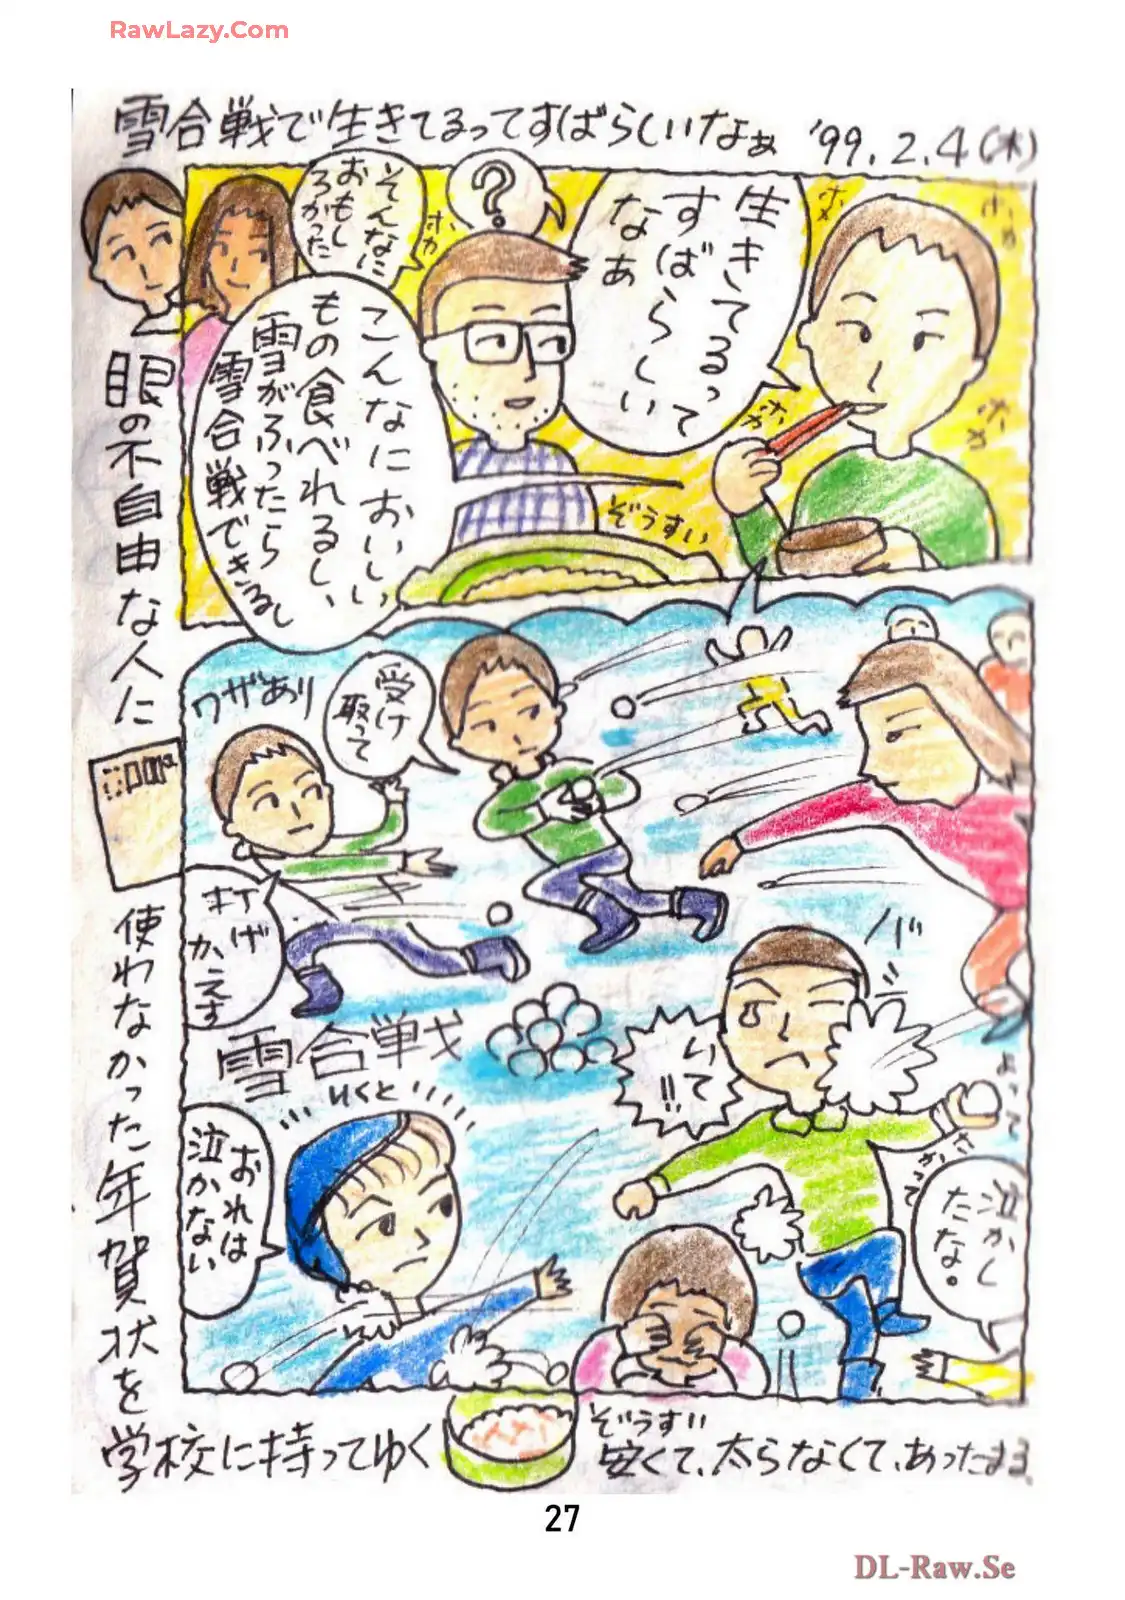 RawLazy.Com
雪合戦で生きてるってすばらしいなぁ '99.2.4(木)
生きてるって
すばらしい
なぁ
?
そんなに
おもし
ろかった
こんなにおいしい
もの食べれるし、
雪がふったら
雪合戦できるし
ホカ
ホカ
ホカ
ぞうすい
ワザあり
受け
取って
打げ
かえす
雪合戦
バシ
いて
!!
おれは
泣かない
泣かし
たな。
眼の不自由な人に
使わなかった年賀状を
学校に持ってゆく
ぞうすい
安くて、太らなくて、あったまる
27
DL-Raw.Se